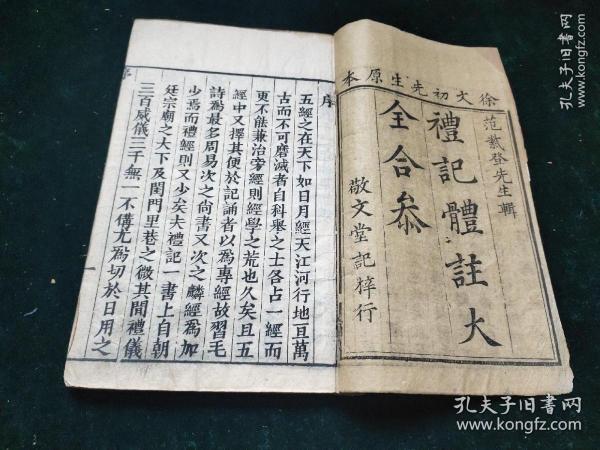 徐文初先生原本
范紫登先生輯
禮記體註大
全合叅
敬文堂記梓行
序
五經之在天下如日月經天江河行地亘萬
古而不可磨滅者自科舉之士各占一經而
更不能兼治旁經則經學之荒也久矣且五
經中又擇其便於記誦者以爲專經故習毛
詩爲最多周易次之尚書又次之麟經爲加
少焉而禮經則又少矣夫禮記一書上自朝
廷宗廟之大下及閨門里巷之微其間禮儀
三百威儀三千無一不備尤爲切於日用之
孔夫子旧书网
www.kongfz.com
孔夫子旧书网
www.kongfz.com